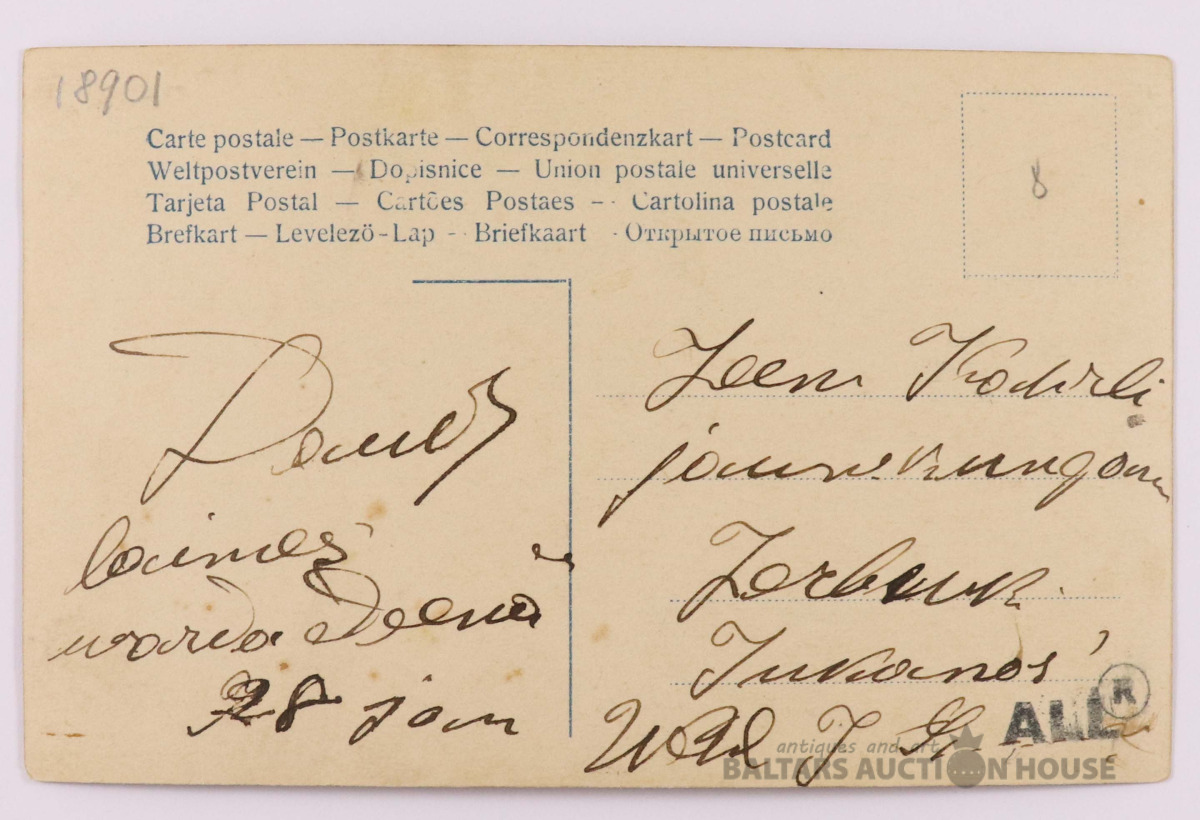 18901
Carte postale — Postkarte — Correspondenzkart — Postcard
Weltpostverein — Dopisnice — Union postale universelle
Tarjeta Postal — Cartões Postaes — Cartolina postale
Brefkart — Levelezö-Lap — Briefkaart - Открытое письмо
8
Daudz
laimes
warda deenā
28 jan
Jukanos
ALL R
antiques and art
BALTARS AUCTION HOUSE